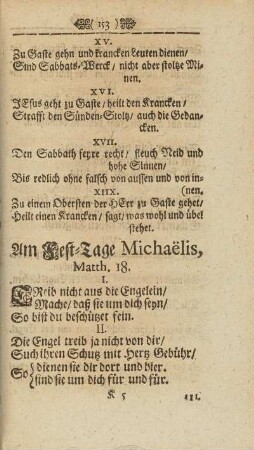 153
XV.
Zu Gaste gehn und krancken Leuten dienen/
Sind Sabbats-Werck/ nicht aber stoltze Mi-
nen.
XVI.
JEsus geht zu Gaste/ heilt den Krancken/
Strafft den Sünden-Stoltz/ auch die Gedan-
cken.
XVII.
Den Sabbath feyre recht/ fleuch Neid und
hohe Sinnen/
Bis redlich ohne falsch von aussen und von in-
(nen.
XIIX.
Zu einem Obersten der HErr zu Gaste gehet/
Heilt einen Krancken/ sagt/ was wohl und übel
stehet.
Am Fest-Tage Michaëlis,
Matth. 18.
I.
TReib nicht aus die Engelein/
Mache/ daß sie um dich seyn/
So bist du beschützet fein.
II.
Die Engel treib ja nicht von dir/
Such ihren Schutz mit Hertz Gebühr/
So dienen sie dir dort und hier.
sind sie um dich für und für.
K 5
III.